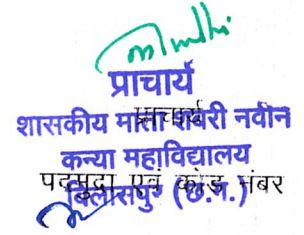 प्राचार्य
प्राचार्य
शासकीय माता शबरी नवीन
कन्या महाविद्यालय
पदमुद्रा एवं कोड नंबर
बिलासपुर (छ.ग.)